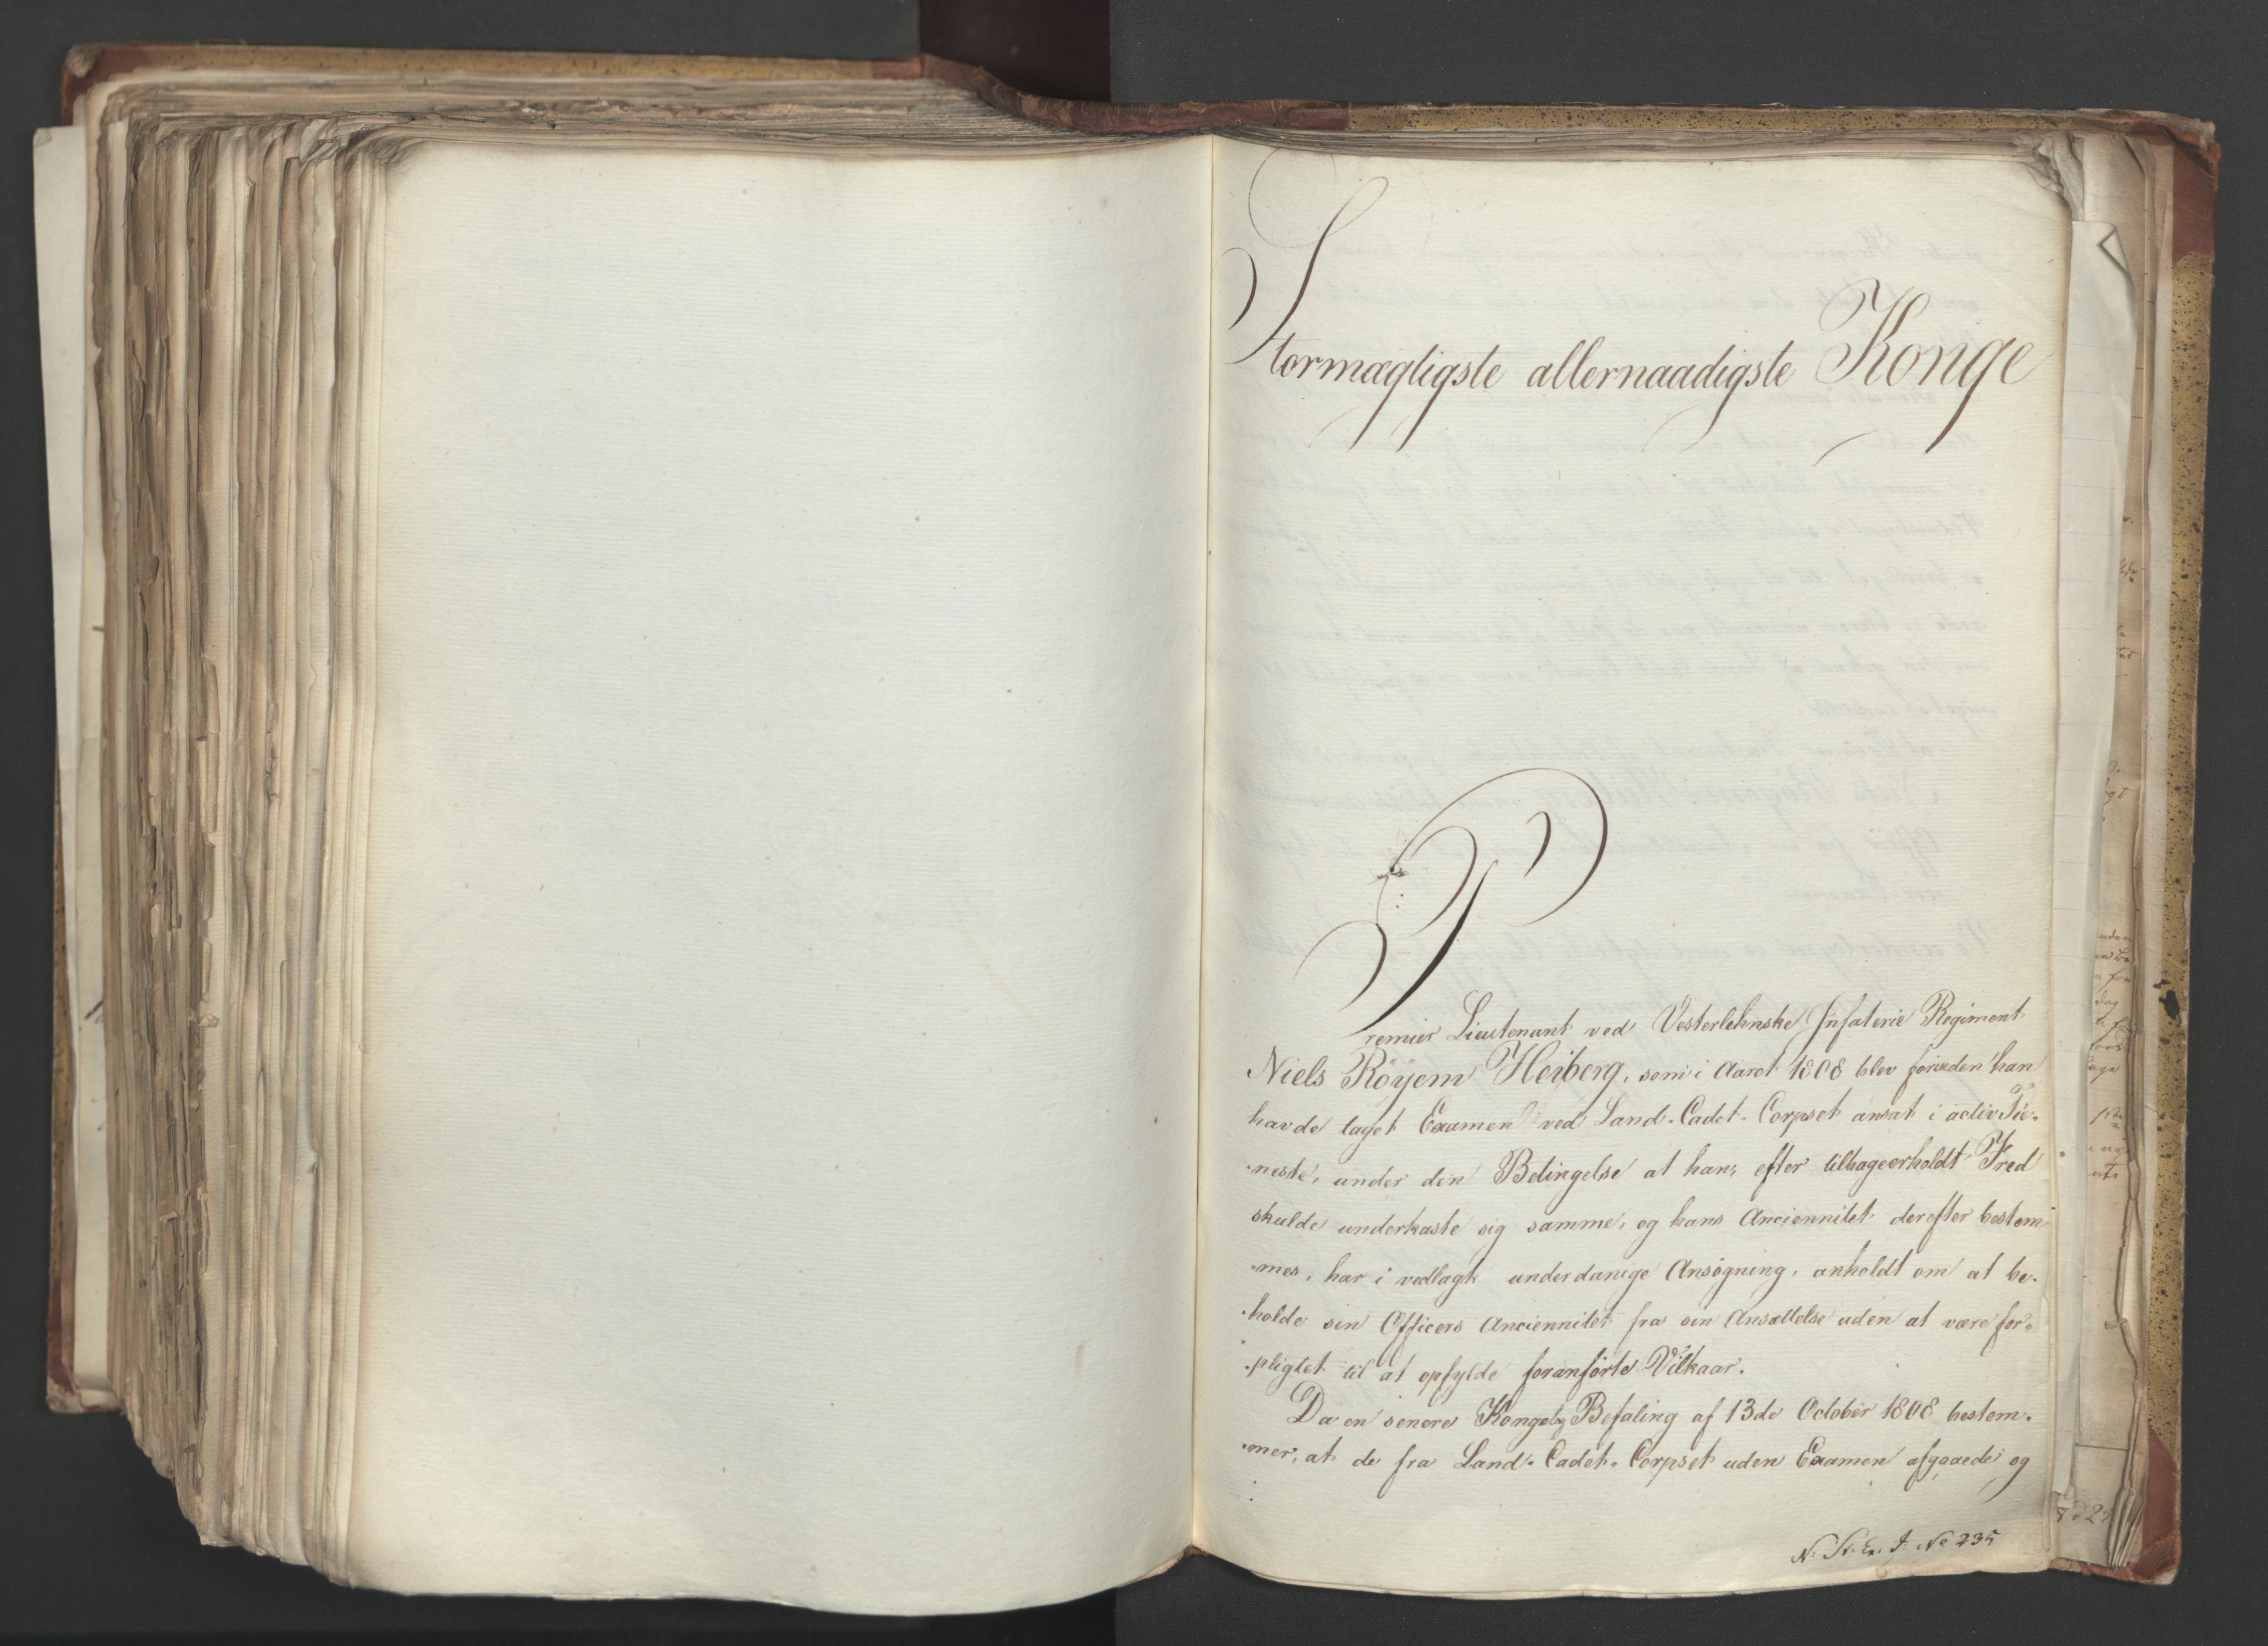 Stormægtigste allernaadigste Konge
Premier Lieutenant ved Vesterlehnske Infaterie Regiment
Niels Röyem Heiberg, som i Aaret 1808 blev forinden han
havde taget Examen ved Land-Cadet-Corpset ansat i activ Tie-
neste, under den Betingelse at han, efter tilbageerholdt Fred
skulde underkaste sig samme, og hans Anciennitet derefter bestem
mes, har i vedlagte underdanige Ansøgning, anholdt om at be-
holde sin Officers Anciennitet fra sin Ansættelse uden at være for-
pligtet til at opfylde foranførte Vilkaar.
Da en senere Kongelig Befaling af 13de October 1808 bestem-
mer, at de fra Land-Cadet-Corpset uden Examen afgaaede og
N: St. Ex. J. No 235